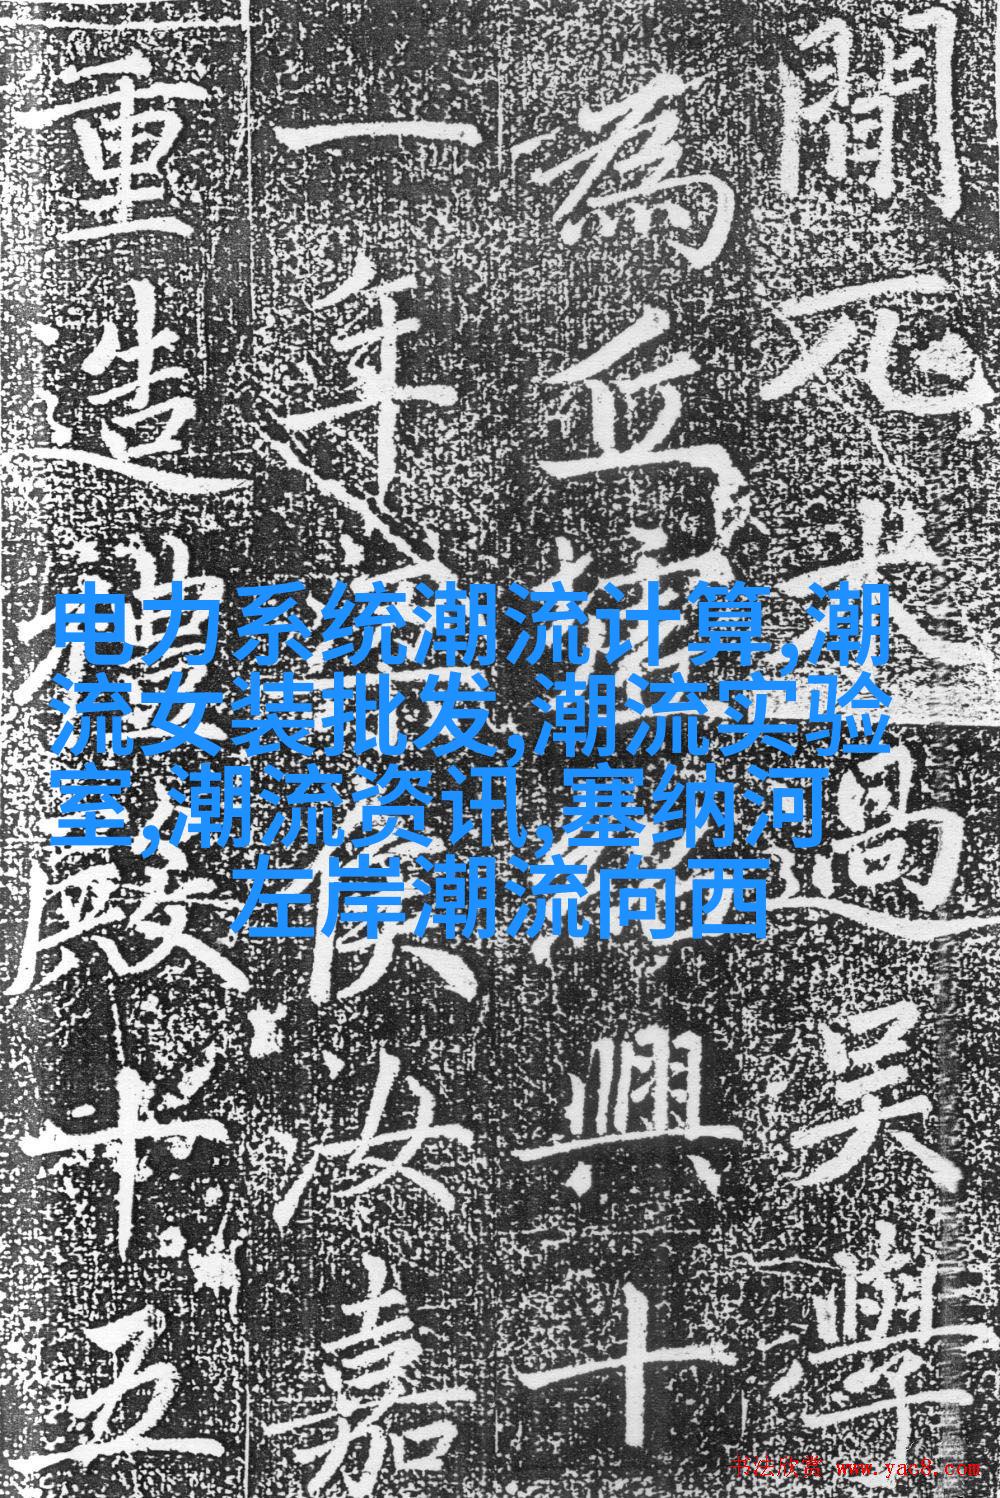 电力系统潮流计算,潮
流女装批发,潮流实验
室,潮流资讯,塞纳河
左岸潮流向西
閒兀朮過吳學
為兵興十
一年侯汝嘉
重造禮殿十五
书法欣赏 www.yac8.com